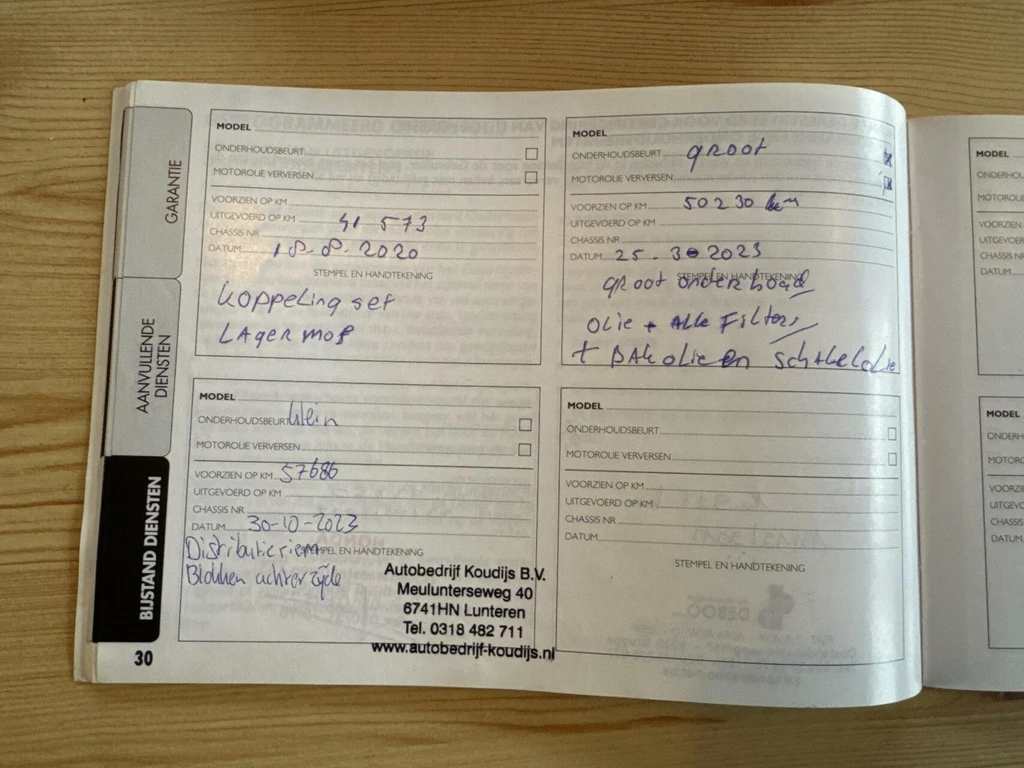 GARANTIE
AANVULLENDE
DIENSTEN
BIJSTAND DIENSTEN
30
MODEL
ONDERHOUDSBEURT
MOTOROLIE VERVERSEN
VOORZIEN OP KM
UITGEVOERD OP KM 41 573
CHASSIS NR
DATUM 18.8.2020
STEMPEL EN HANDTEKENING
Koppeling set
LAger mof
MODEL
ONDERHOUDSBEURT groot
MOTOROLIE VERVERSEN
VOORZIEN OP KM 50230 km
UITGEVOERD OP KM
CHASSIS NR
DATUM 25.3 2023
STEMPEL EN HANDTEKENING
groot onderhoud
OLie + ALLe Filters
+ BAK olie en schakelolie
MODEL
ONDERHOUDSBEURT klein
MOTOROLIE VERVERSEN
VOORZIEN OP KM 57686
UITGEVOERD OP KM
CHASSIS NR
DATUM 30-10-2023
STEMPEL EN HANDTEKENING
Distributieriem
Blokken achterzijde
Autobedrijf Koudijs B.V.
Meulunterseweg 40
6741HN Lunteren
Tel. 0318 482 711
www.autobedrijf-koudijs.nl
MODEL
ONDERHOUDSBEURT
MOTOROLIE VERVERSEN
VOORZIEN OP KM
UITGEVOERD OP KM
CHASSIS NR
DATUM
STEMPEL EN HANDTEKENING
MODEL
ONDERHOU
MOTOROL
VOORZIEN
UITGEVOER
CHASSIS
DATUM
MODEL
ONDERH
MOTORO
VOORZIE
UITGEVO
CHASSIS
DATUM